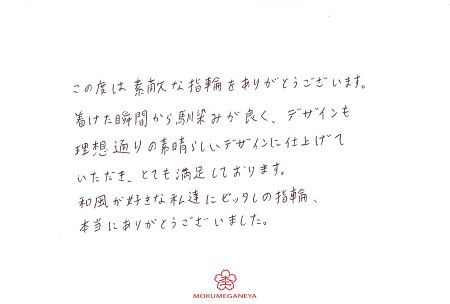 この度は素敵な指輪をありがとうございます。
着けた瞬間から馴染みが良く、デザインも
理想通りの素晴らしいデザインに仕上げて
いただき、とても満足しております。
和風が好きな私達にピッタレの指輪、
本当にありがとうございました。
MOKUMEGANEYA